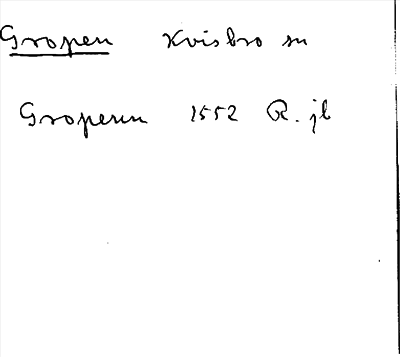 Gropen Kvisbro sn
Gropernn 1552 R. jb